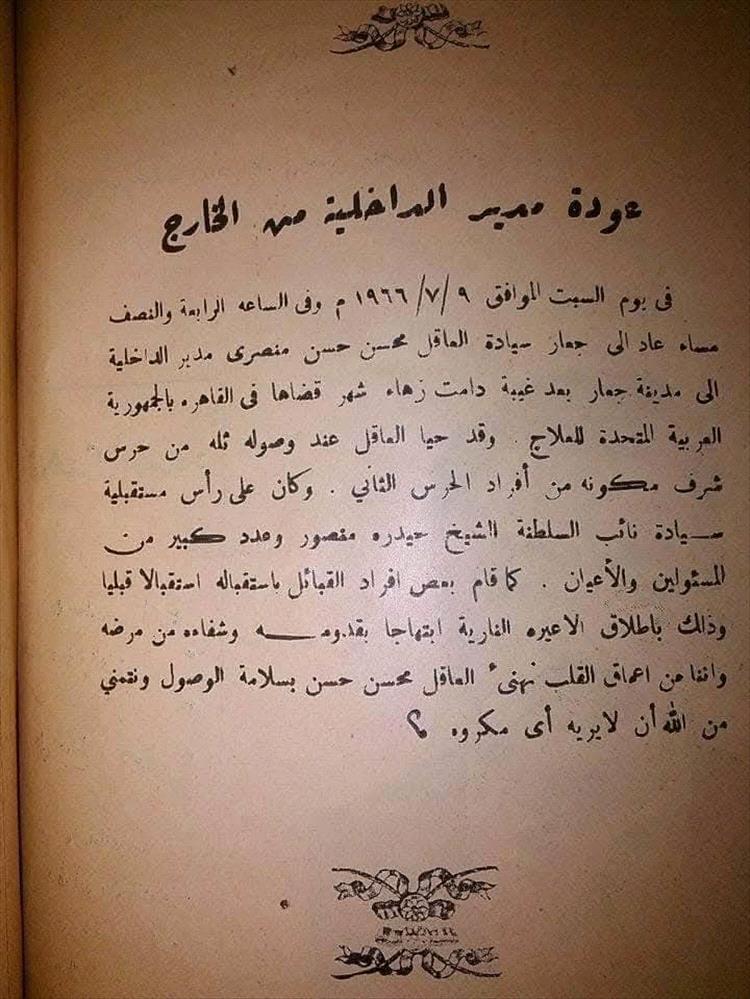 عودة مدير الداخلية من الخارج
فى يوم السبت الموافق ٩ /٧ /١٩٦٦ م وفى الساعه الرابعة والنصف
مساء عاد الى جعار سيادة العاقل محسن حسن منصرى مدير الداخلية
الى مدينة جعار بعد غيبة دامت زهاء شهر قضاها فى القاهره بالجمهورية
العربية المتحدة للعلاج . وقد حيا العاقل عند وصوله ثله من حرس
شرف مكونه من أفراد الحرس الثاني . وكان على رأس مستقبلية
سيادة نائب السلطنة الشيخ حيدره منصور وعدد كبير من
المسئولين والأعيان . كما قام بعض افراد القبائل باستقباله استقبالا قبليا
وذلك باطلاق الاعيره النارية ابتهاجا بقدومه وشفاءه من مرضه
واننا من اعماق القلب نهنىء العاقل محسن حسن بسلامة الوصول ونتمني
من الله أن لايريه أى مكروه